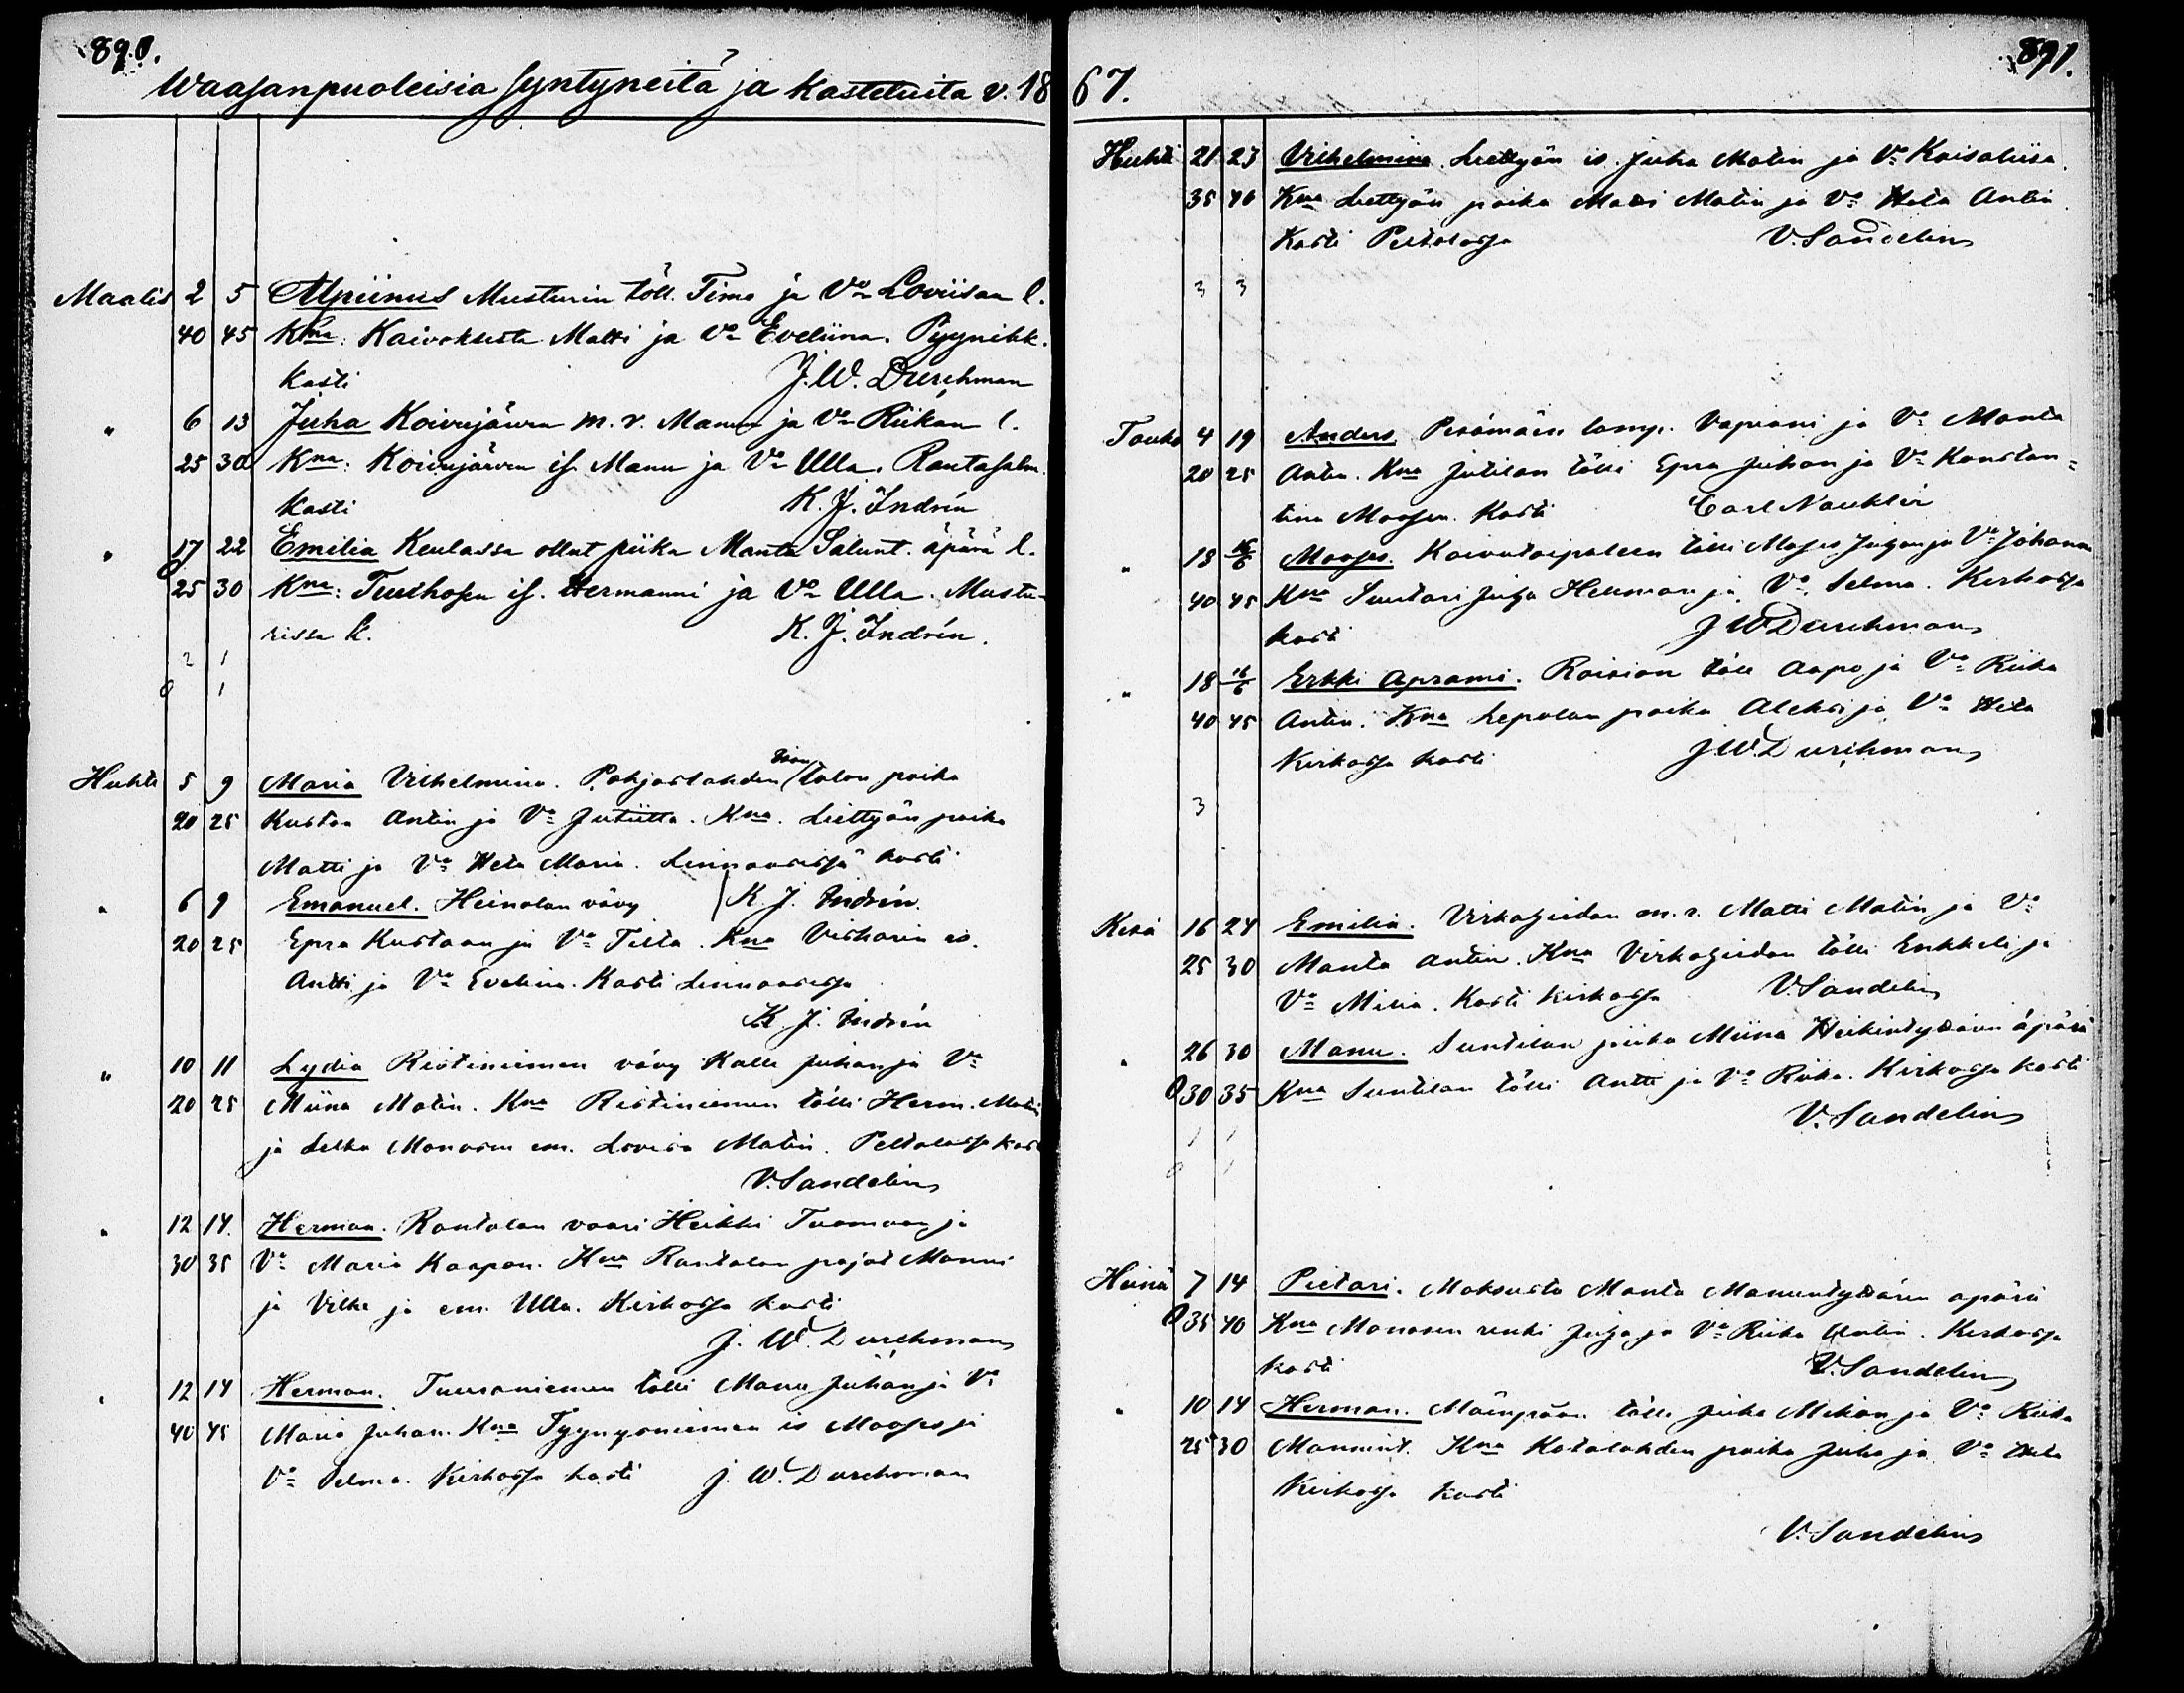 890.
Waasanpuoleisia syntyneitä ja kastetuita v. 18
Maalis 2 5 Alpiinus Musturin töll. Timo ja Vo Loviisan l.
40 45 Kna: Kaivokselta Matti ja Vo Eveliina. Pyynikk.
kasti J. W. Durchman
" 6 13 Juha Koivujärven m. v. Manun ja Vo Riikan l.
25 30 Kna: Koivujärven is. Manu ja Vo Ulla. Rantasalm.
kasti K. J. Indrén
" 17 22 Emilia Keulassa ollut piika Manta Salunt. äpärä l.
0 25 30 Kna: Tuuihosen is. Hermanni ja Vo Ulla. Mustu-
rissa k. K. J. Indrén.
2 1
0 1
Huhti 5 9 Maria Vilhelmina. Pohjaslahden talon poika
20 25 Kustaa Antin ja Vo Jutiitta. Kna. Liettyän poika
Matti ja Vo Heta Maria. Linnaarissa kasti
" 6 9 Emanuel. Heinolan vävy K. J. Indrén.
20 25 Epra Kustaan ja Vo Tilta. Kna Viskarin is.
Antti ja Vo Evelina. Kasti Linnaarissa
K. J. Indrén
" 10 11 Lydia Ristiniemen vävy Kalle Juhan ja Vo
20 25 Miina Matin. Kna Ristiniemen tölli Herm. Matin
ja Selka Monosen em. Lovisa Matin. Peltolassa kasti
V. Sandelin
" 12 14. Herman. Rantalan vaari Heikki Tuomaan ja
30 35 Vo Maria Kaapon. Kna Rantalan pojat Manni
ja Vilke ja em. Ulla. Kirkossa kasti
J. W. Durchman
" 12 14 Herman. Tuuraniemen tölli Manu Juhan ja Vo
40 45 Maria Juhan. Kna Tyynyäniemen is Mooses ja
Vo Selma. Kirkossa kasti J. W. Durchman
67.
891.
Huhti 21 23 Vilhelmina. Liettyän is. Juha Matin ja Vo Kaisaliisa.
35 40 Kna Liettyän poika Matti Matin ja Vo Heta Antin.
Kasti Peltolassa V. Sandelin
3 3
Touko 4 19 Anders. Perämäen lamp. Vaprami ja Vo Manta
20 25 Antin. Kna Jutilan tölli Epra Juhan ja Vo Konstan=
tina Moosen. Kasti Carl Nauklér
" 18 16/6 Mooses. Koivutaipaleen tölli Moses Juhan ja Vo Johanna
40 45 Kna Suutari Juha Helleman ja Vo Selma. Kirkossa
kasti J W Durchman
" 18 16/6 Erkki Aprami. Raision töll Aapo ja Vo Riika
40 45 Antin. Kna Lepolan poika Aleksi ja Vo Heta
Kirkossa kasti J W. Durchman
3
Kesä 16 24 Emilia. Virkahiidan m. r. Matti Matin ja Vo
25 30 Manta Antin. Kna Virkahiidan tölli Enkkeli ja
Vo Milia. Kasti kirkossa V. Sandelin
" 26 30 Manu. Suntilan piika Miina Heikintyttären äpärä
0 30 35 Kna Suntilan tölli Antti ja Vo Riika. Kirkossa kasti
V. Sandelin
1 1
0 1
Heinä 7 14 Pietari. Maksusta Manta Manuntyttären äpärä
0 35 40 Kna Monosen renki Juha ja Vo Riika Antin. Kirkossa
kasti V. Sandelin
" 10 14 Herman. Mäenpään tölli Juha Mikon ja Vo Riika
25 30 Mannint. Kna Katalahden poika Juha ja Vo Heta
Kirkossa kasti
V. Sandelin